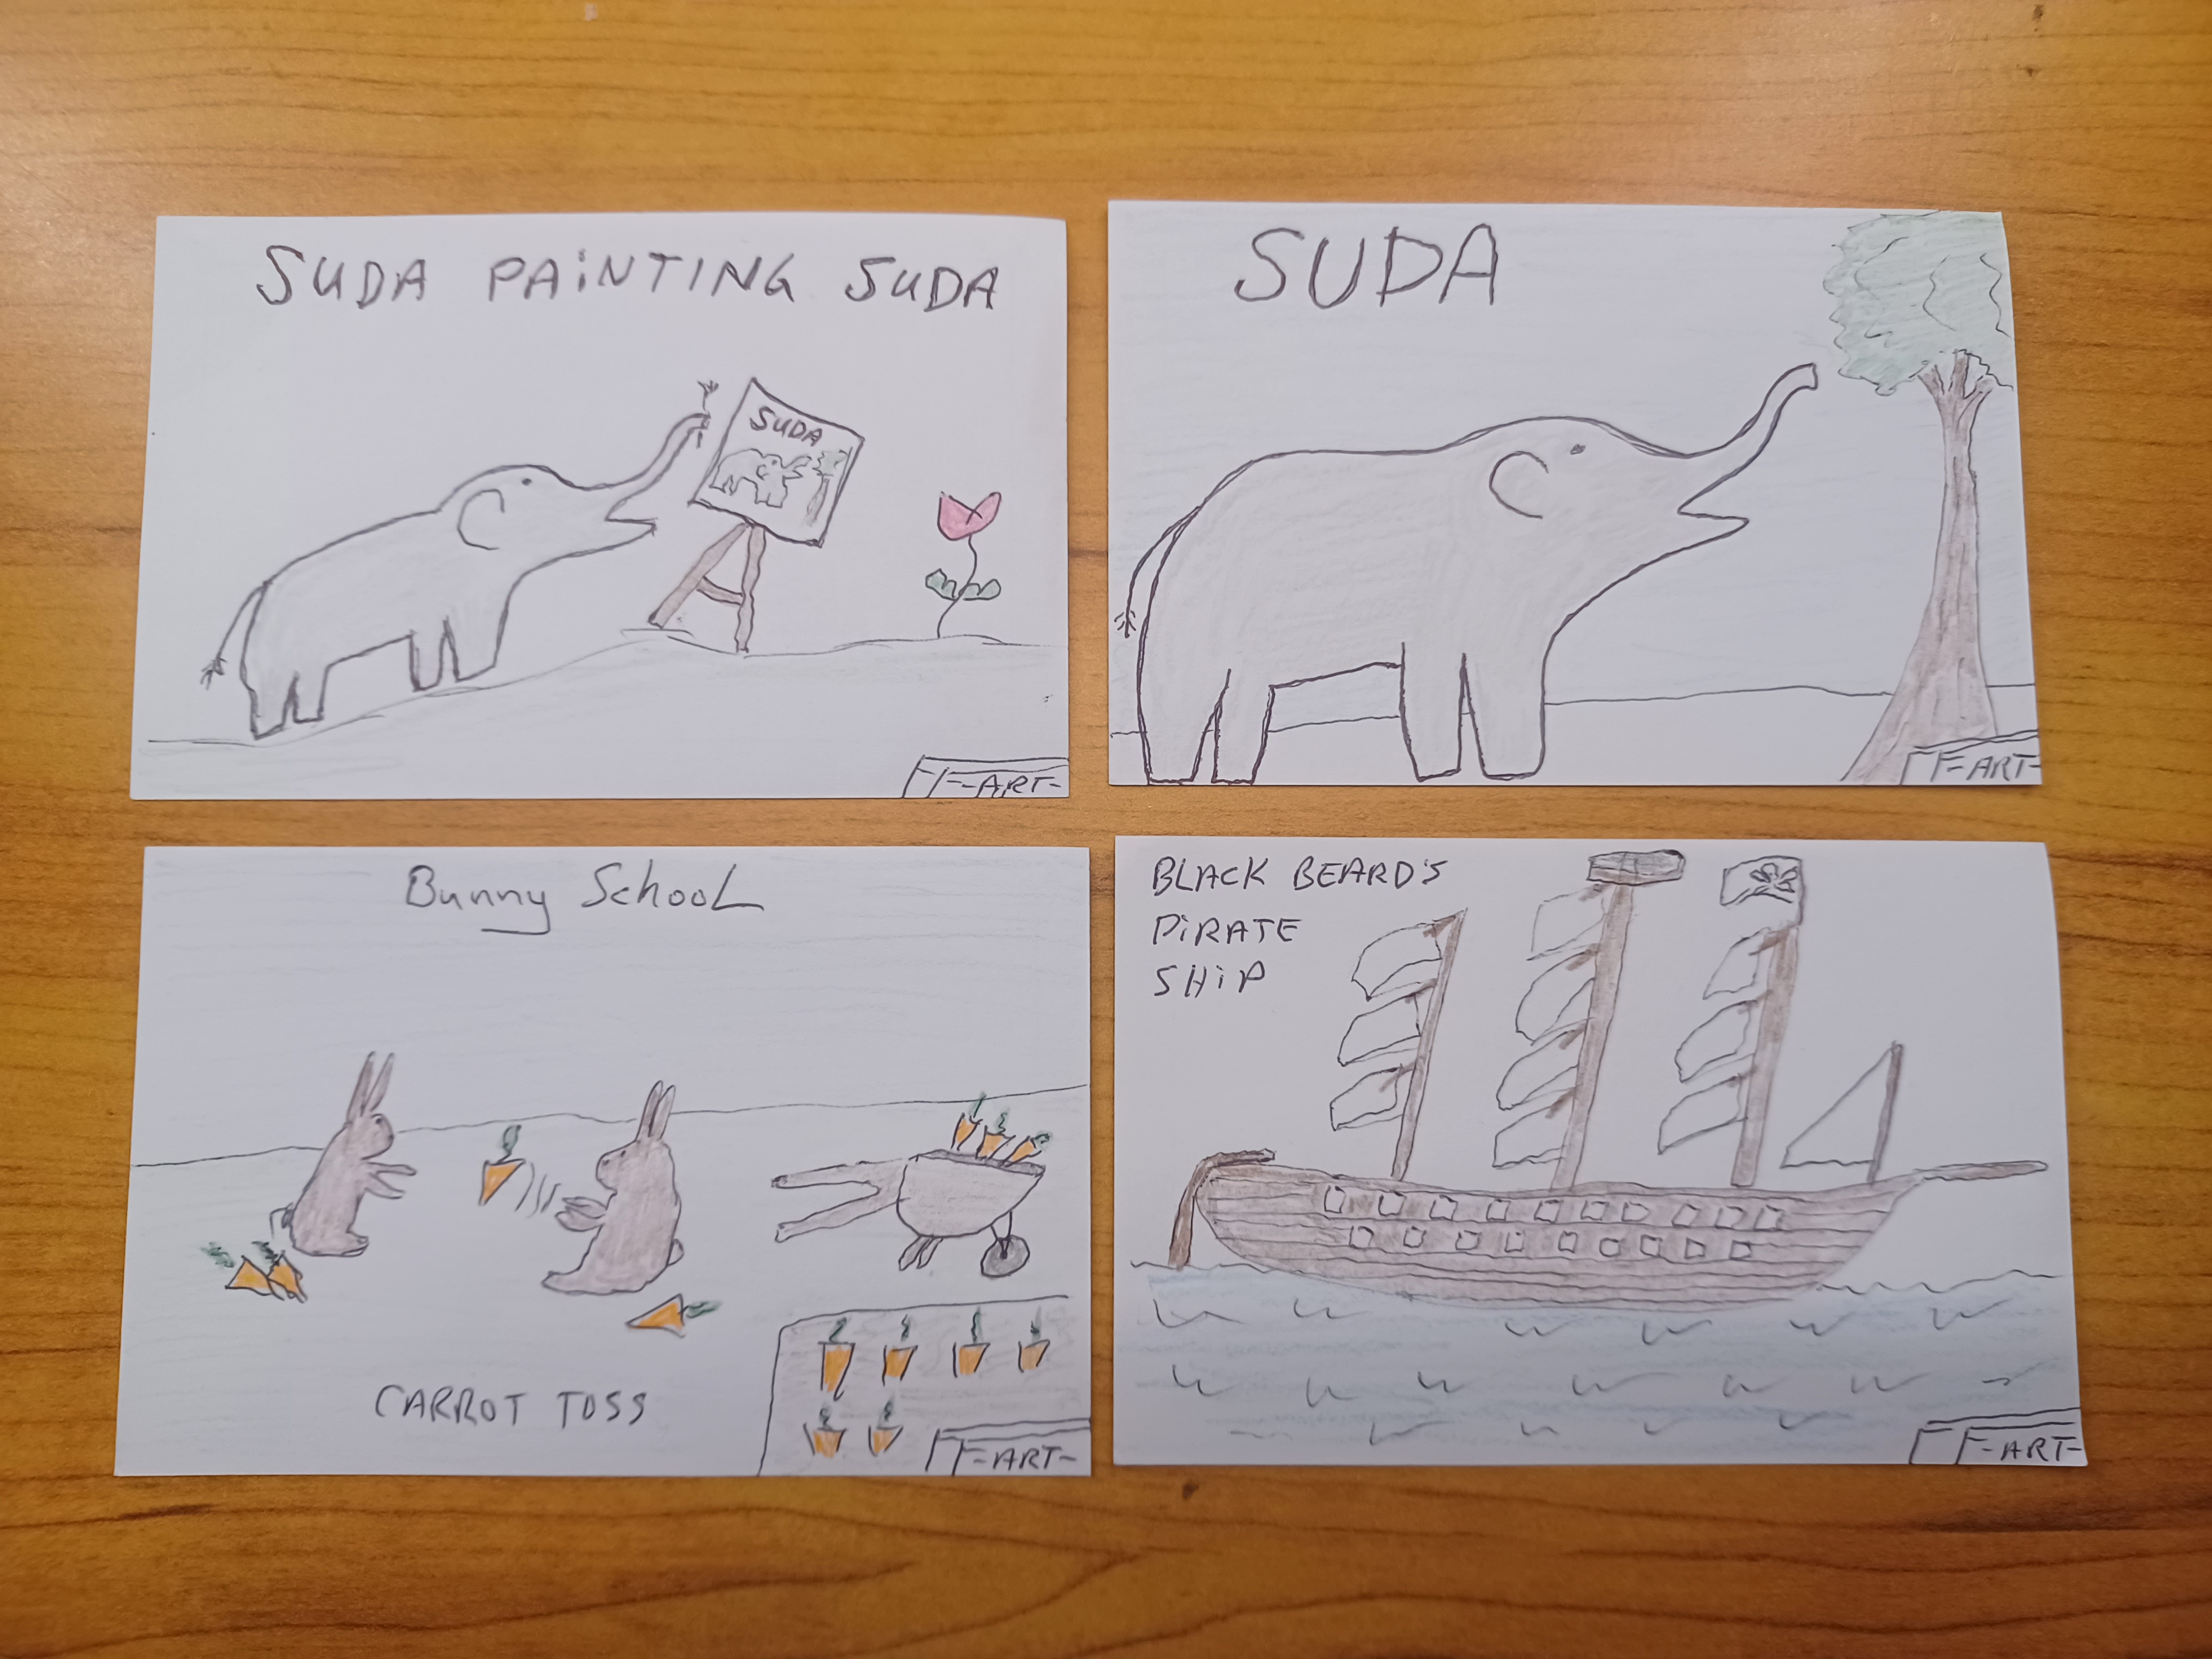 SUDA PAiNTING SUDA
SUDA
FF-ART-
SUDA
FF-ART-
Bunny SchooL
CARROT TOSS
FF-ART-
BLACK BEARD'S
PiRATE
SHiP
FF-ART-